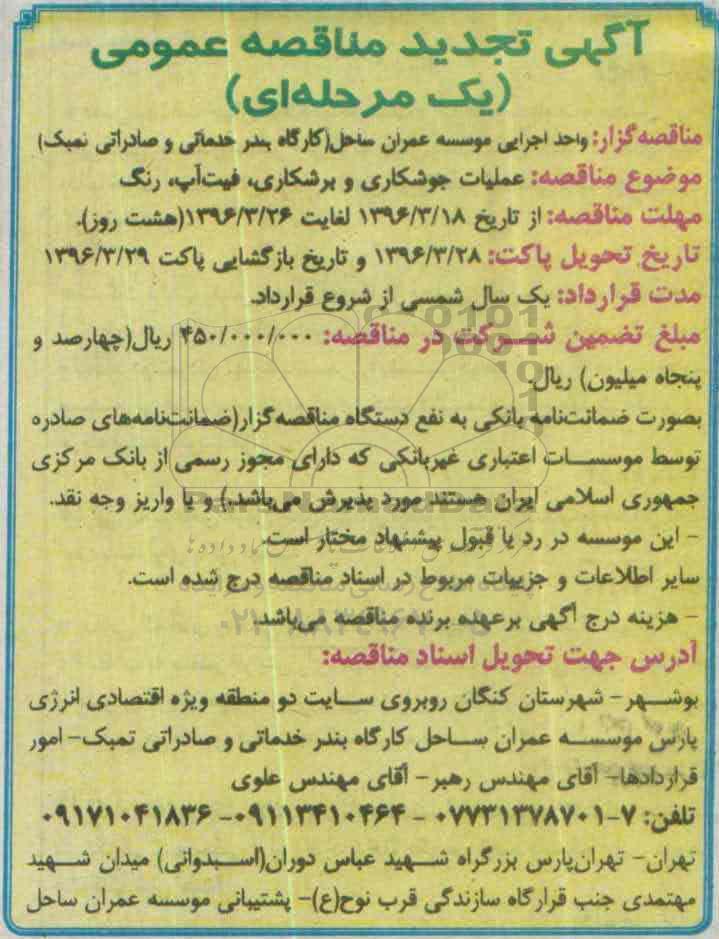 آگهی تجدید مناقصه عمومی
(یک مرحله‌ای)
مناقصه گزار: واحد اجرایی موسسه عمران ساحل(کارگاه بندر خدماتی و صادراتی تمبک)
موضوع مناقصه: عملیات جوشکاری و برشکاری، فیت‌آپ، رنگ
مهلت مناقصه: از تاریخ ۱۳۹۶/۳/۱۸ لغایت ۱۳۹۶/۳/۲۶(هشت روز).
تاریخ تحویل پاکت: ۱۳۹۶/۳/۲۸ و تاریخ بازگشایی پاکت ۱۳۹۶/۳/۲۹
مدت قرارداد: یک سال شمسی از شروع قرارداد.
مبلغ تضمین شـــرکت در مناقصه: ۴۵۰/۰۰۰/۰۰۰ ریال(چهارصد و
پنجاه میلیون) ریال.
بصورت ضمانت‌نامه بانکی به نفع دستگاه مناقصه‌گزار(ضمانت‌نامه‌های صادره
توسط موسســات اعتباری غیربانکی که دارای مجوز رسمی از بانک مرکزی
جمهوری اسلامی ایران هستند مورد پذیرش می‌باشد.) و یا واریز وجه نقد.
- این موسسه در رد یا قبول پیشنهاد مختار است.
سایر اطلاعات و جزییات مربوط در اسناد مناقصه درج شده است.
- هزینه درج آگهی برعهده برنده مناقصه می‌باشد.
آدرس جهت تحویل اسناد مناقصه:
بوشــهر- شهرستان کنگان روبروی ســایت دو منطقه ویژه اقتصادی انرژی
پارس موسســه عمران ســاحل کارگاه بندر خدماتی و صادراتی تمبک- امور
قراردادها- آقای مهندس رهبر- آقای مهندس علوی
تلفن: ۷-۰۷۷۳۱۳۷۸۷۰۱ - ۰۹۱۱۳۴۱۰۴۶۴- ۰۹۱۷۱۰۴۱۸۳۶
تهران- تهران‌پارس بزرگراه شــهید عباس دوران(اســبدوانی) میدان شــهید
مهتمدی جنب قرارگاه سازندگی قرب نوح(ع)- پشتیبانی موسسه عمران ساحل